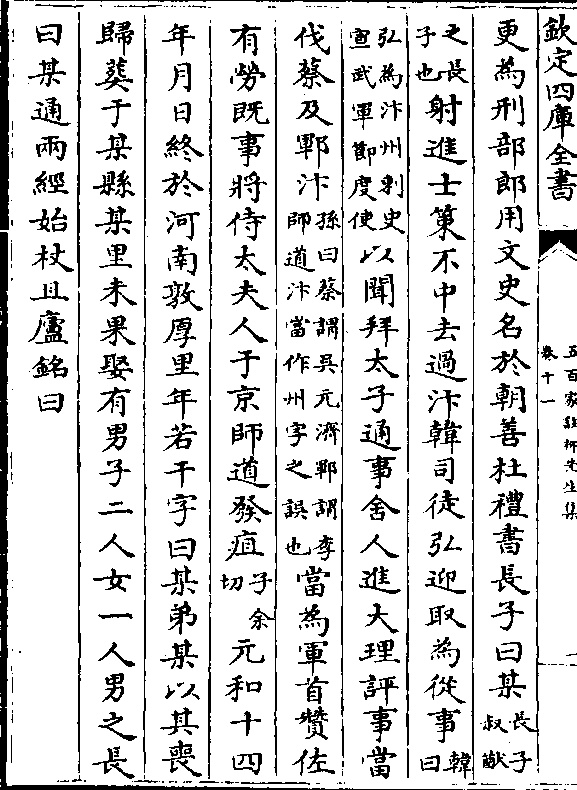 欽定四庫全書
五百家註柳先生集
卷十一
更為刑部郎用文史名於朝善杜禮書長子曰某長子叔獻
之長子也射進士策不中去過汴韓司徒弘迎取為從事韓曰
弘為汴州刺史宣武軍節度使以聞拜太子通事舍人進大理評事當
伐蔡及鄆汴孫曰蔡謂吳元濟鄆謂李師道汴當作州字之誤也當為軍首贊佐
有勞既事將侍太夫人于京師道發疽子余切元和十四
年月日終於河南敦厚里年若干字曰某弟某以其喪
歸葬于某縣某里未果娶有男子二人女一人男之長
曰某通兩經始杖且廬銘曰